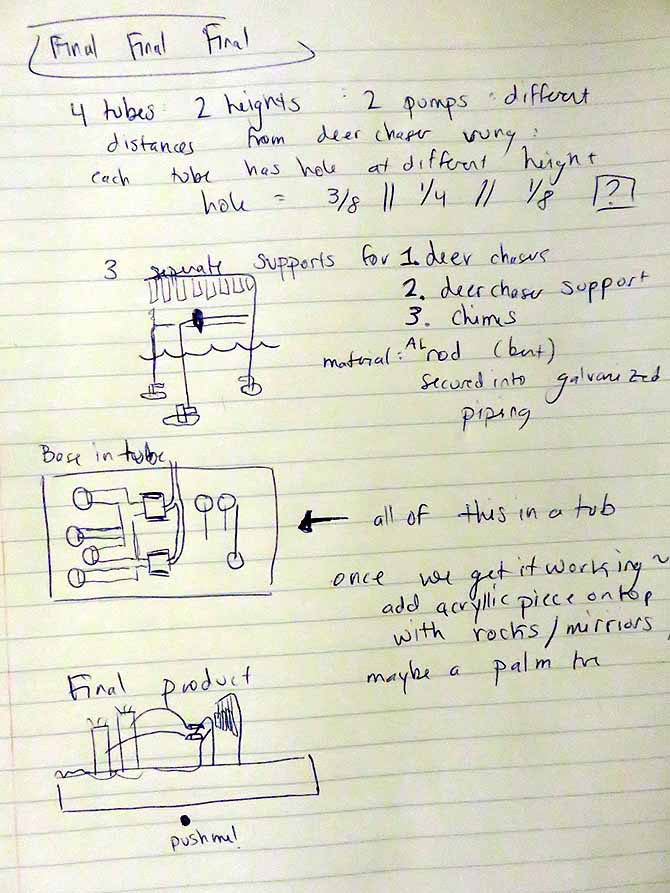 Final Final Final
4 tubes : 2 heights : 2 pumps : different
distances from deer chaser rung :
each tube has hole at different height
hole = 3/8 || 1/4 // 1/8 ?
3 separate supports for 1. deer chasers
2. deer chaser support
3. chimes
material: AL rod (bent)
secured into galvanized
piping
Base in tube
all of this in a tub
once we get it working ~
add acryllic piece on top
with rocks/mirriors,
maybe a palm tre
Final product
pushme!